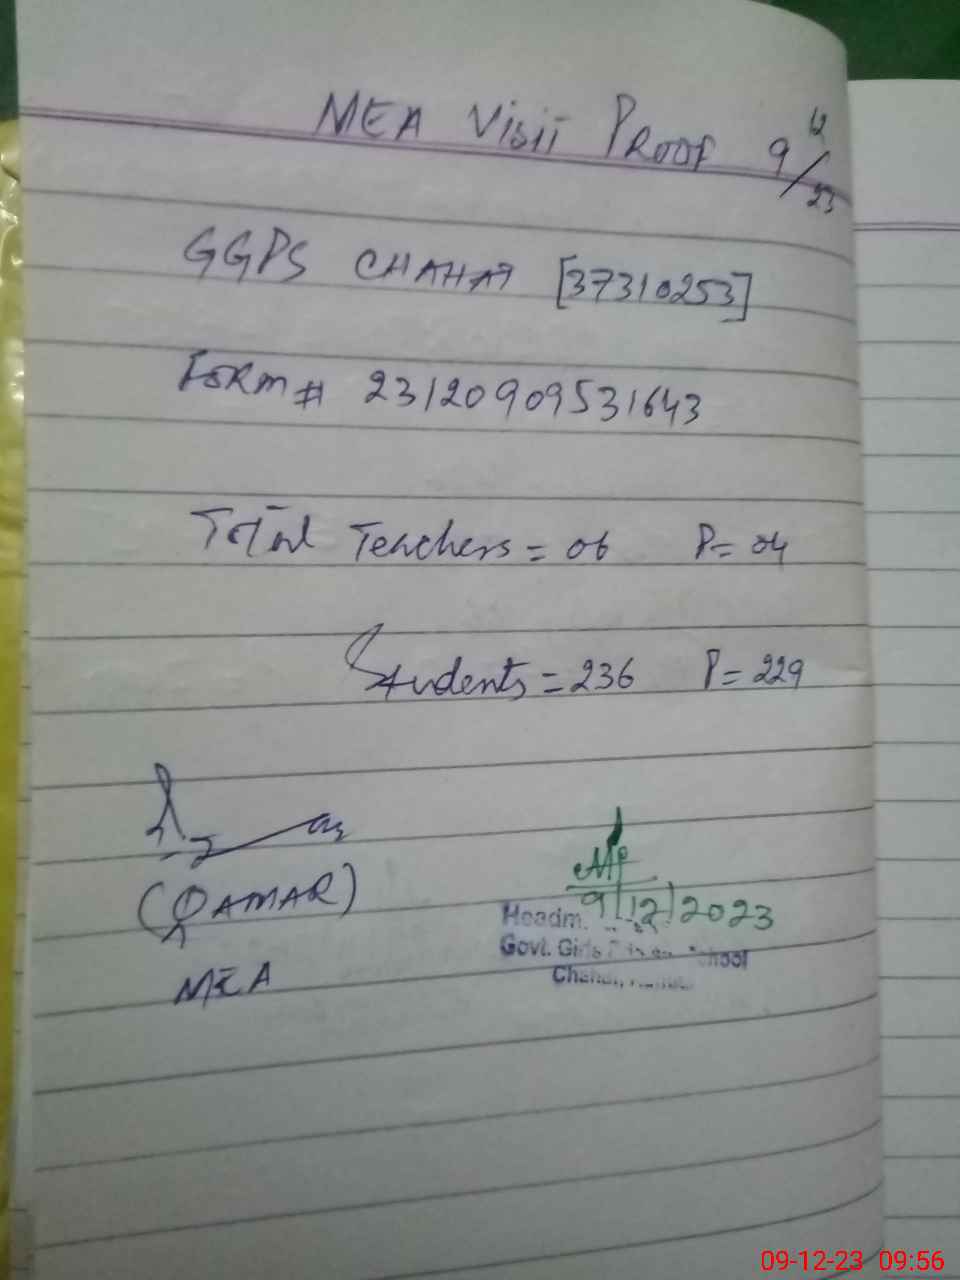 MEA Visit Proof 9/12/23
GGPS CHAHAT [37310253]
Form # 23120909531643
Total Teachers = 06 P= 04
Students = 236 P= 229
(QAMAR)
MEA
9/12/2023
Headm.
Govt. Girls School
09-12-23 09:56